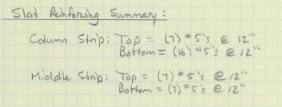 Slab Reinforcing Summary:
Column Strip: Top = (7) #5's @ 12"
Bottom = (16) #5's @ 12"
Middle Strip: Top = (7) #5's @ 12"
Bottom = (7) #5's @ 12"